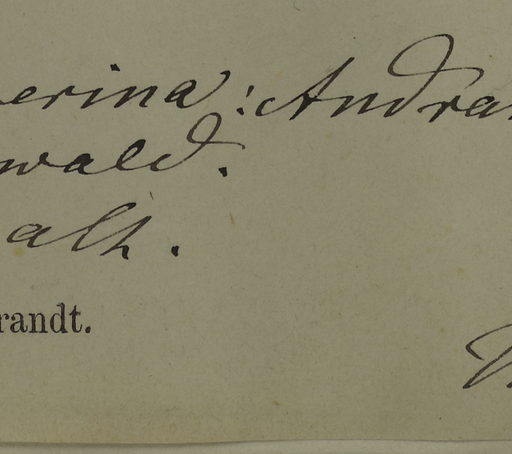 erina: Andra
wald.
alh.
randt.